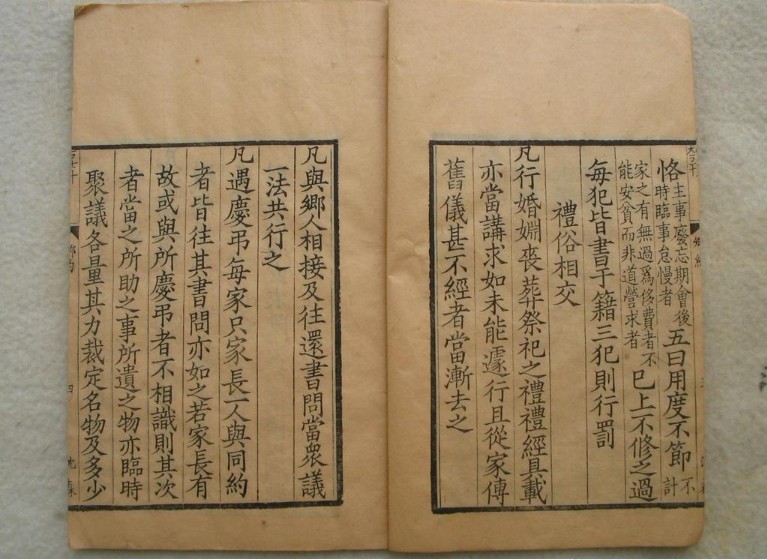 恪主事廢忘期會後時臨事怠慢者五曰用度不節不計
家之有無過爲侈費者不能安貧而非道營求者巳上不修之過
每犯皆書于籍三犯則行罰
禮俗相交
凡行婚婣喪葬祭祀之禮禮經具載
亦當講求如未能遽行且從家傳
舊儀甚不經者當漸去之
凡與鄉人相接及往還書問當衆議
一法共行之
凡遇慶弔每家只家長一人與同約
者皆往其書問亦如之若家長有
故或與所慶弔者不相識則其次
者當之所助之事所遺之物亦臨時
聚議各量其力裁定名物及多少
四